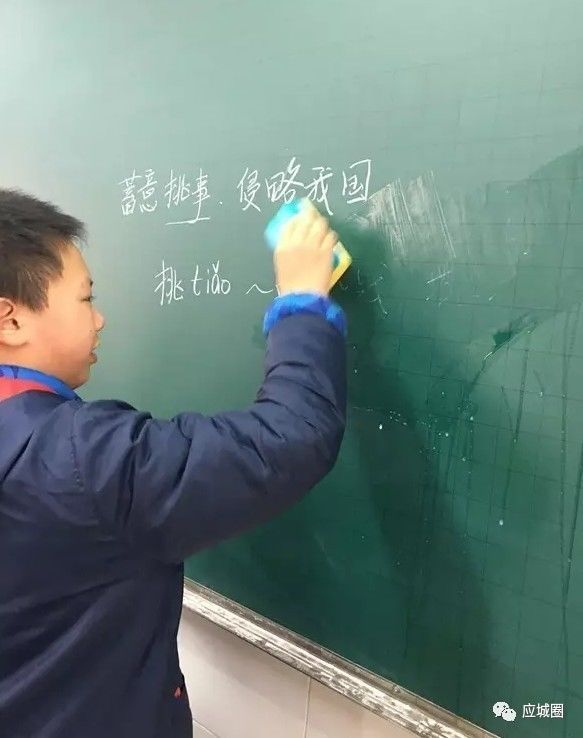 蓄意挑事.侵略我国
挑tiǎo～
应城圈